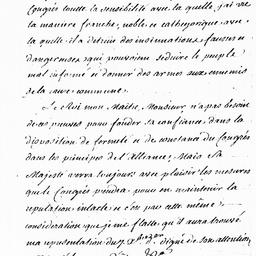 Congrès toute la sensibilité avec la quelle j'ai vu
la maniere franche, noble et cathegorique avec
la quelle il a détruit des insinuations fausses et
dangereuses qui pouvoient séduire le peuple
mal informé et donner des armes aux ennemis
de la cause commune.
Le Roi mon Maître, Monsieur n'a pas besoin
de ces preuves pour fonder sa confiance dans la
disposition de fermeté et de constance du Congrès
dans les principes de l'alliance; Mais Sa
Majesté verra toujours avec plaisir les mesures
que le Congrès prendra pour en maintenir la
reputation intacte et c'est par cette même
consideration que je me flatte qu'il aura trouvé
ma representation du 7. digne de son attention